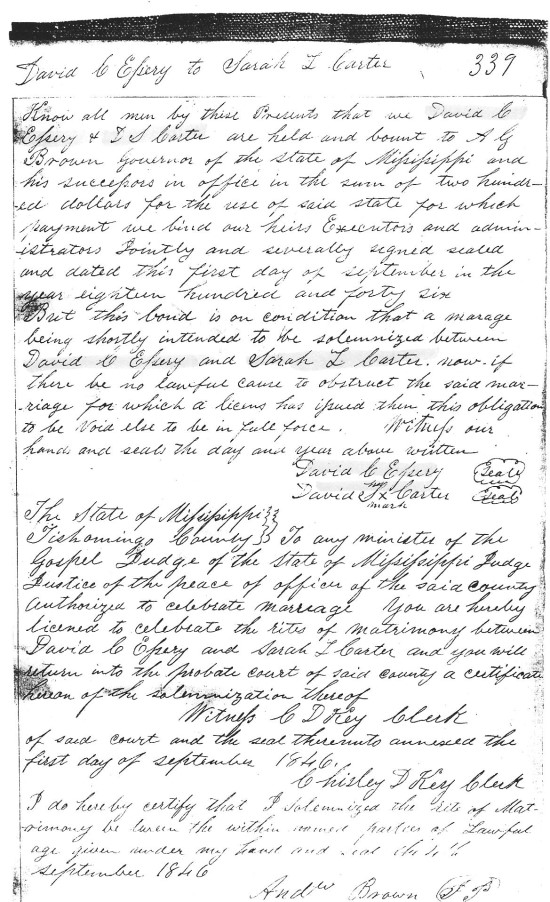 David C Essery to Sarah L Carter 339
Know all men by these Presents that we David C
Essery & D S Carter are held and bount to A G
Brown Governor of the State of Mississippi and
his successors in office in the sum of two hundr-
ed dollars for the use of said state for which
payment we bind our heirs Executors and admin-
istrators Jointly and severally signed sealed
and dated this first day of september in the
year eighteen hundred and forty six
But this bond is on condition that a marage
being shortly intended to be solemnized between
David C Essery and Sarah L Carter. now if
there be no lawful cause to obstruct the said mar-
riage for which a licens has issued then this obligation
to be Void else to be in full force. Witness our
hands and seals the day and year above written
David C Essery Seal
David S x Carter Seal
mark
The State of Mississippi
Tishomingo County To any minister of the
Gospel Judge of the State of Mississippi Judge
Justice of the peace of officer of the said county
Authorized to celebrate marriage You are hereby
licened to celebrate the rites of matrimony between
David C Essery and Sarah L Carter and you will
return into the probate court of said county a certificate
hereon of the solemnization thereof
Witness C D Key Clerk
of said court and the seal thereunto annexed the
first day of september 1846.
Chisley D Key Clerk
I do hereby certify that I solemnized the rite of Mat-
rimony be tween the within named parties of Lawful
age given under my hand and seal this 4th
September 1846
Andw Brown J P